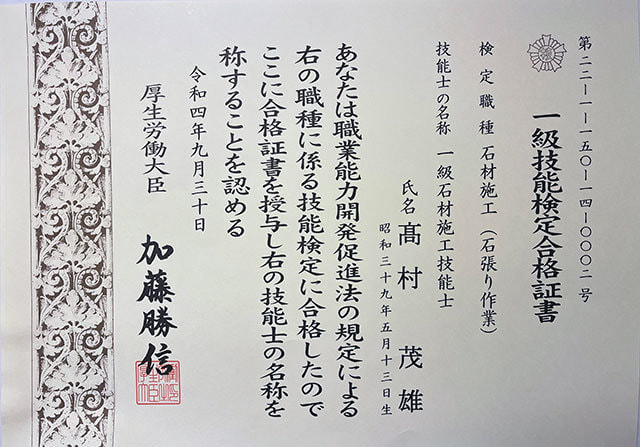 第二二―一―一五〇―一四―〇〇〇二号
一級技能検定合格証書
検定職種 石材施工（石張り作業）
技能士の名称 一級石材施工技能士
氏名 髙村 茂雄
昭和三十九年五月十三日生
あなたは職業能力開発促進法の規定による
右の職種に係る技能検定に合格したので
ここに合格証書を授与し右の技能士の名称を
称することを認める
令和四年九月三十日
厚生労働大臣
加藤勝信